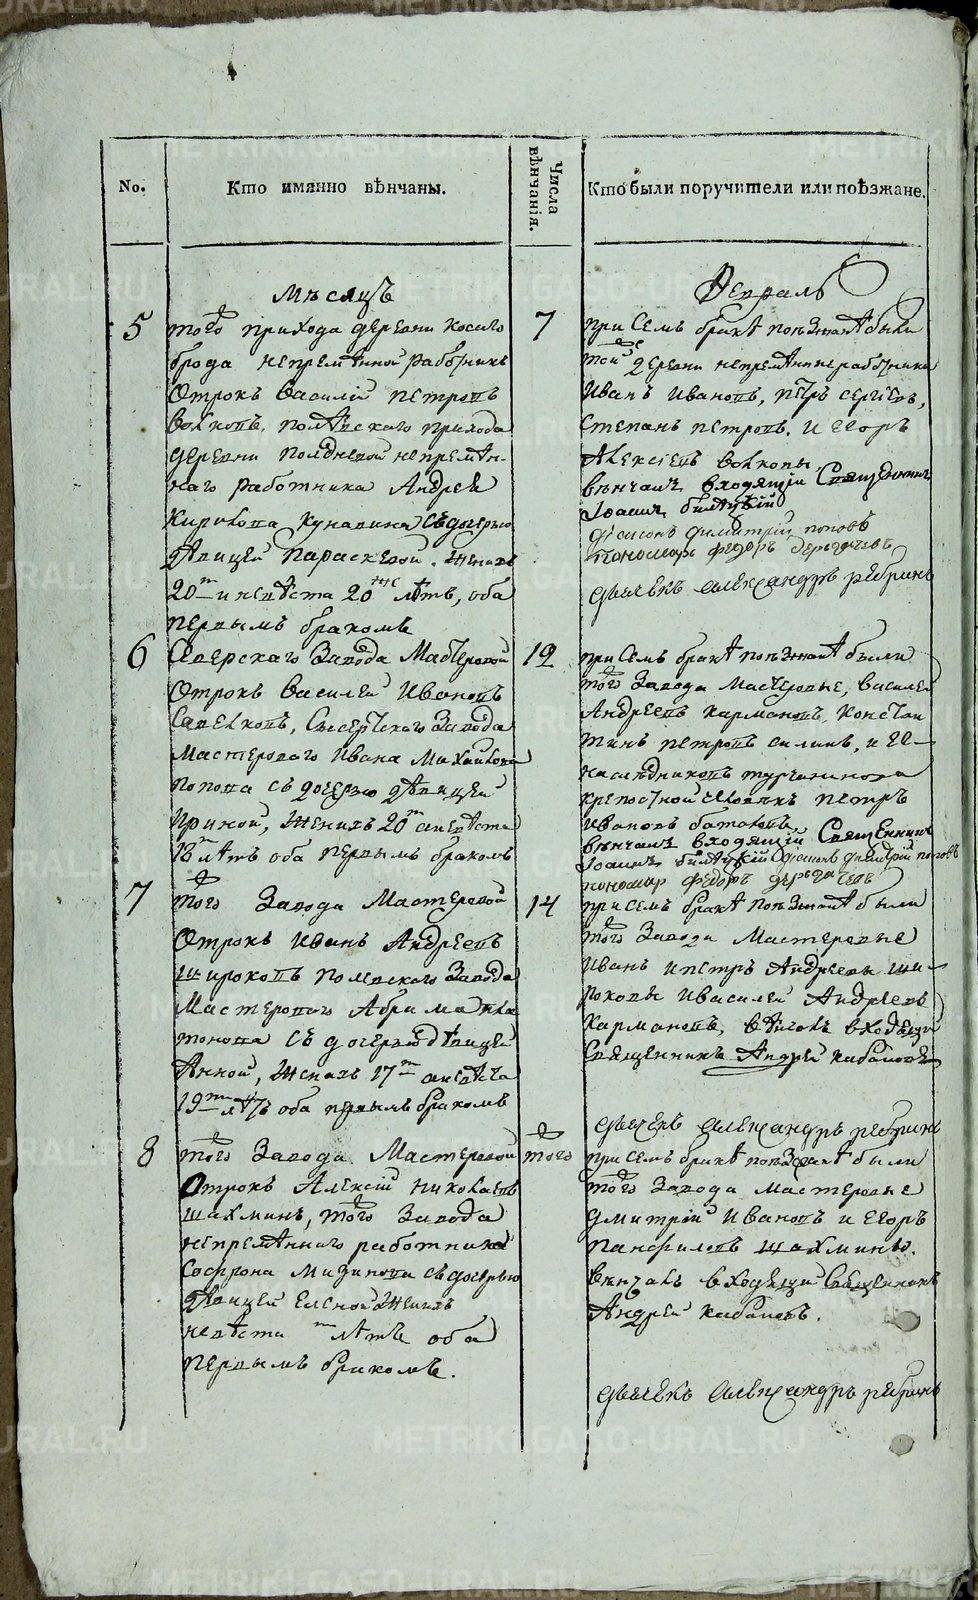 No.
Кто имянно вѣнчаны.
Числа вѣнчанія.
Кто были поручители или поѣзжане.
Мѣсяцъ
Февраль
5
того прихода деревни Косаго
брода непремѣнной работникъ
Отрокъ Василій Петровъ
Волковъ, полѣвскаго прихода
деревни полдневой непремѣн-
наго работника Андрея
Кирилова Кунавина съ дочерью
дѣвицей Параскевой. женихъ
20 и невѣста 20 лѣтъ, оба
первымъ бракомъ
7
при семъ бракѣ поѣзжанѣ были
той деревни непремѣнные работники
Иванъ Ивановъ, Петръ Сергіевъ,
Степанъ Петровъ, и Егоръ
Алексіевъ Волковы
вѣнчалъ входящій Священникъ
Іоаннъ
діаконъ Димитрій Поповъ
пономарь Федоръ
дьячекъ Александръ Рябинъ
6
Северскаго Завода Мастеровой
Отрокъ Василей Ивановъ
Савелковъ, Сысертскаго Завода
мастероваго Ивана Михайлова
Попова съ дочерью дѣвицей
Ириной, женихъ 20 а невѣста
18 лѣтъ оба первымъ бракомъ
12
при семъ бракѣ поѣзжанѣ были
того Завода Мастеровые, Василей
Андреевъ Кармановъ, Констан
тинъ Петровъ Силинъ, и
наслѣдниковъ Турчанинова
крепостной человѣкъ Петръ
Ивановъ
вѣнчалъ входящій Священникъ
Іоаннъ діаконъ Димитрій Поповъ
пономарь Федоръ
7
того Завода Мастеровой
Отрокъ Иванъ Андреевъ
Широковъ полевскаго Завода
Мастероваго Абрама Пла
тонова съ дочерью дѣвицей
Анной, женихъ 17 а невѣста
19 лѣтъ оба первымъ бракомъ
14
при семъ бракѣ поѣзжанѣ были
того Завода Мастеровые
Иванъ и Петръ Андреевы Ши-
роковы и Василей Андреевъ
Кармановъ, вѣнчалъ входящій
Священникъ Андрей Кабановъ
дьячекъ Александръ Рябинъ
8
того Завода Мастеровой
Отрокъ Алексій Николаевъ
Шахминъ, того Завода
непремѣннаго работника
Софрона Мизинова съ дочерью
дѣвицей Еленой женихъ
невѣста лѣтъ оба
первымъ бракомъ.
того
при семъ бракѣ поѣзжанѣ были
того Завода мастеровые
Дмитрій Ивановъ и Егоръ
Панфиловъ Шахмины.
вѣнчалъ входящій Священникъ
Андрей Кабановъ.
дьячекъ Александръ Рябинъ
METRIKI.GASO-URAL.RU